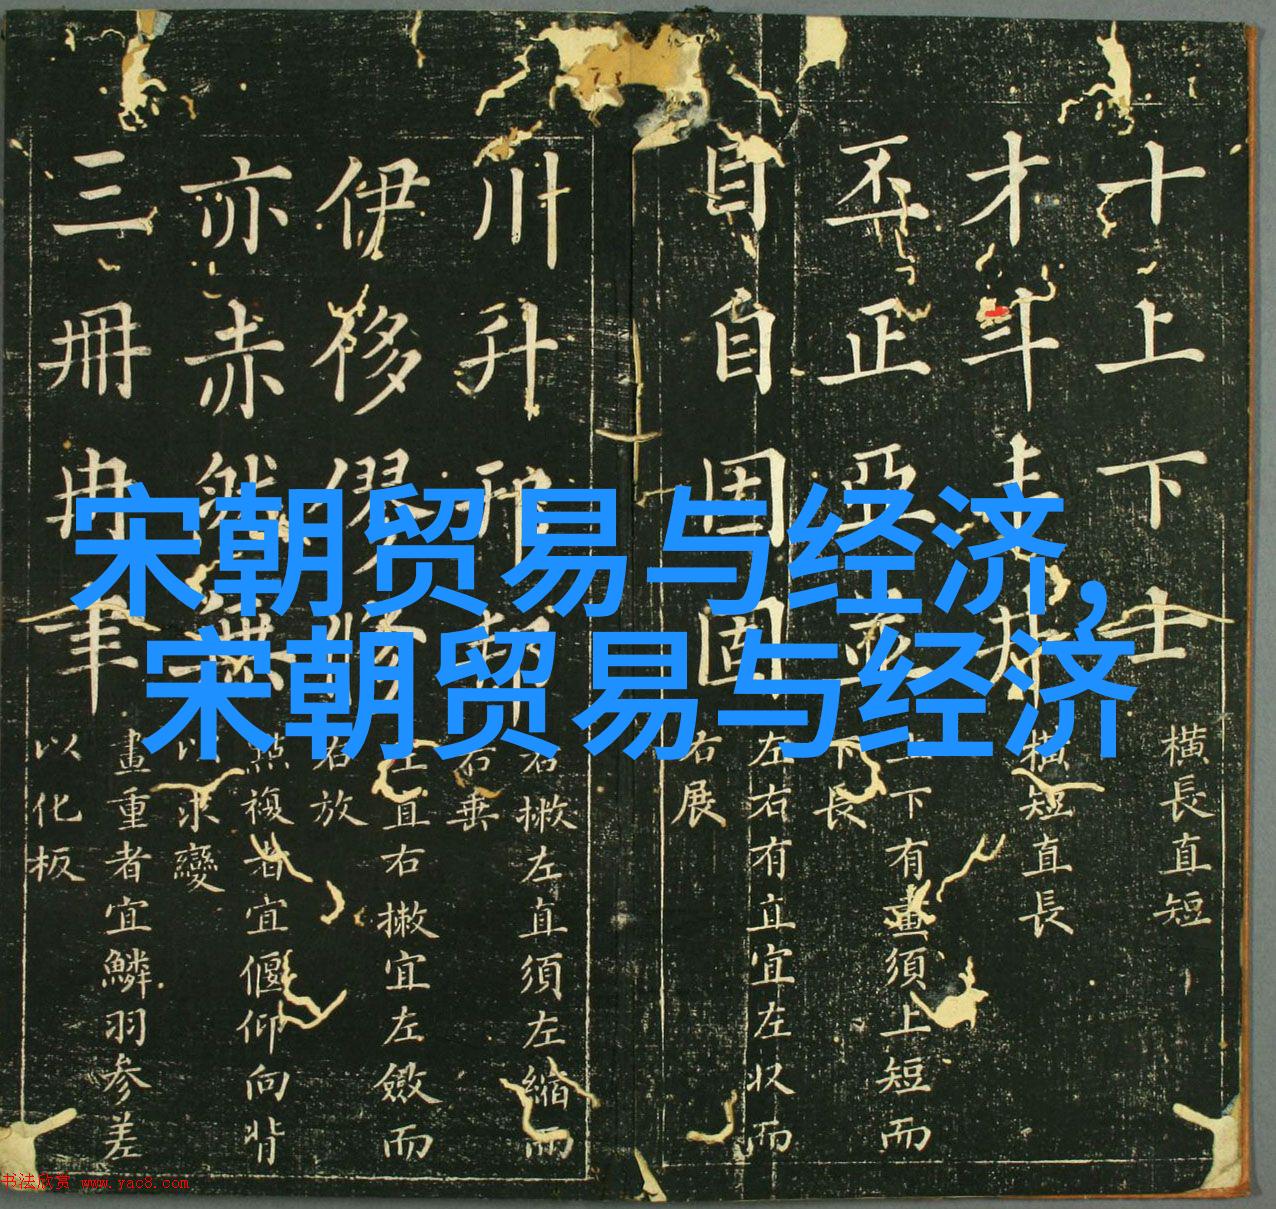 十上下士
橫長直短
才斗
橫短直長
丕正亞
上下有畫須上短而
下長
自自固固
左右有直宜左收而
右展
川升邢
右撇左直須左縮而
右垂
伊移僇修
左直右撇宜左斂而
右放
亦赤然無
點複者宜偃仰向背
以求變
三冊冉聿
畫重者宜鱗羽参差
以化板
宋朝贸易与经济,
宋朝贸易与经济
书法欣赏 www.yac8.com